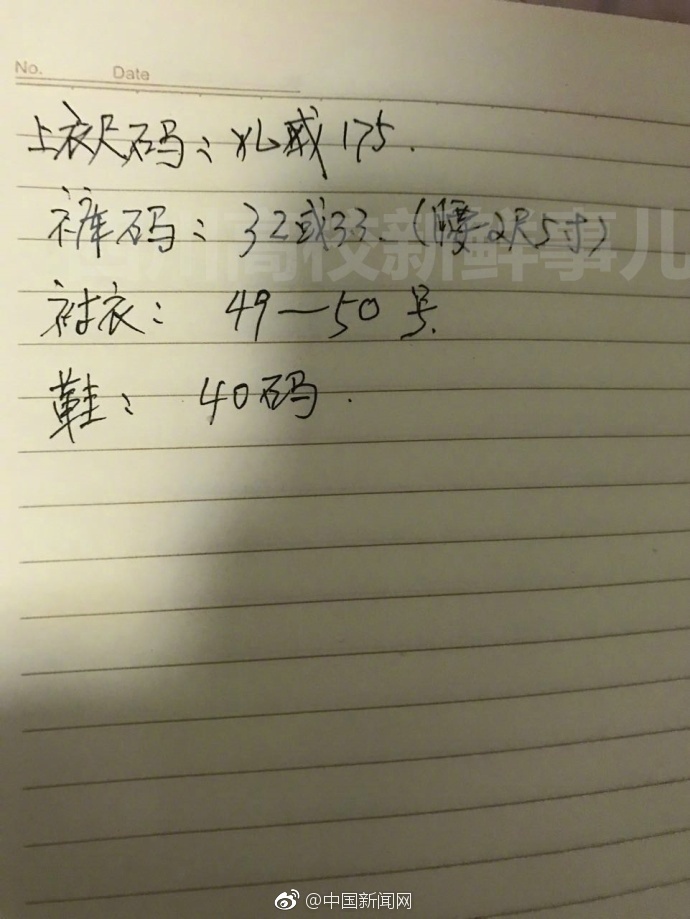 No. Date
上衣尺码: XL或175.
裤码: 32或33.(腰2尺5寸)
高校新鲜事儿
衬衣: 49—50号
鞋: 40码.
@中国新闻网